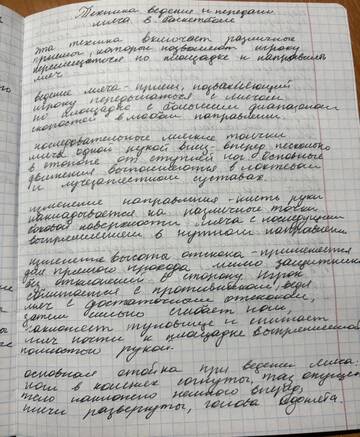 Техника ведения и передачи
мяча в баскетболе
эта техника включает различные
приемы, которые позволяют игроку
перемещаться по площадке и направлять
мяч
ведение мяча - прием, позволяющий
игроку передвигаться с мячом
по площадке с большим диапазоном
скоростей в любом направлении.
последовательные мягкие толчки
мяча одной рукой вниз - вперед несколько
в стороне от ступней ног. Основные
движения выполняются в локтевом
и лучезапястном суставах.
изменение направления - кисть руки
накладывается на различные точки
боковой поверхности мяча с последующим
выпрямлением в нужном направлении
изменение высоты отскока - применяется
для прямого прохода мимо защитника
без отклонения в сторону. Игрок
сближается с противником, ведя
мяч с достаточным отскоком,
затем сильно сгибает ноги,
наклоняет туловище и снижает
мяч почти к площадке выпрямленной
полностью рукой.
основная стойка при ведении мяча:
ноги в коленях согнуты, таз опущен
тело наклонено немного вперед,
плечи развернуты, голова поднята.